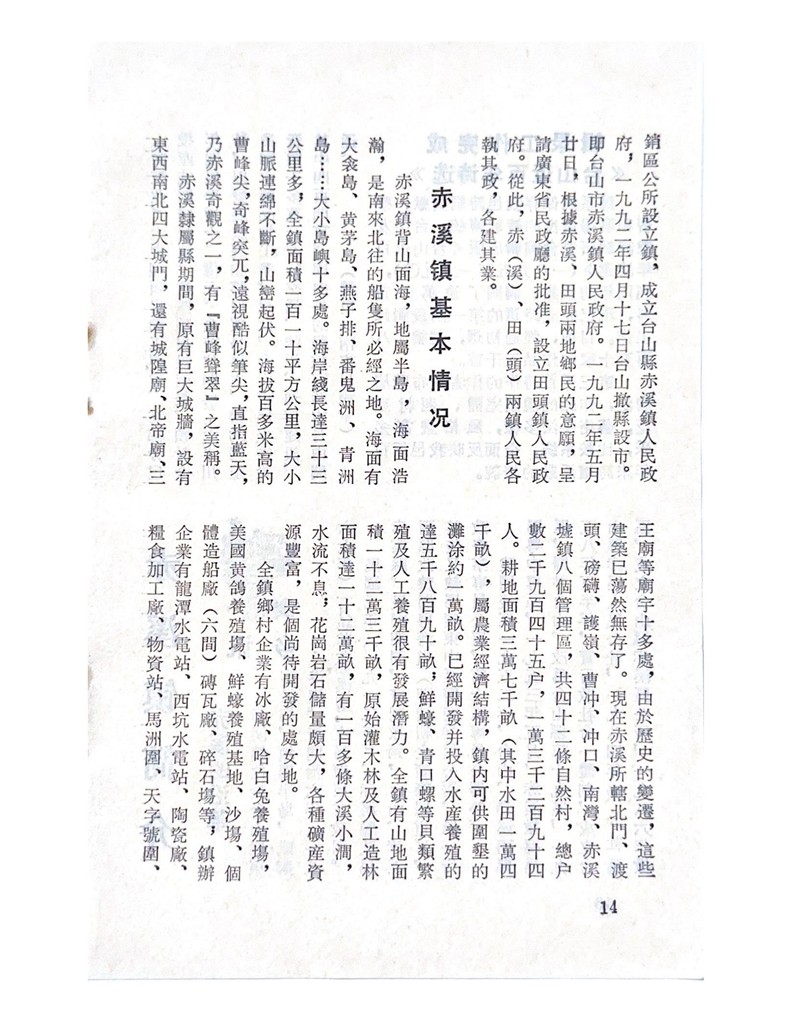 銷區公所設立鎮，成立台山縣赤溪鎮人民政
府，一九九二年四月十七日台山撤縣設市。
即台山市赤溪鎮人民政府。一九九二年五月
廿日，根據赤溪、田頭兩地鄉民的意願，呈
請廣東省民政廳的批准，設立田頭鎮人民政
府。從此，赤（溪）、田（頭）兩鎮人民各
執其政，各建其業。
赤溪镇基本情况
赤溪鎮背山面海，地屬半島，海面浩
瀚，是南來北往的船隻所必經之地。海面有
大衾島、黄茅島、燕子排、番鬼洲、青洲
島……大小島嶼十多處。海岸綫長達三十三
公里多，全鎮面積一百一十平方公里，大小
山脈連綿不斷，山巒起伏。海拔百多米高的
曹峰尖，奇峰突兀，遠視酷似筆尖，直指藍天，
乃赤溪奇觀之一，有『曹峰聳翠』之美稱。
赤溪隸屬縣期間，原有巨大城牆，設有
東西南北四大城門，還有城隍廟、北帝廟、三
王廟等廟宇十多處，由於歷史的變遷，這些
建築已蕩然無存了。現在赤溪所轄北門、渡
頭、磅礴、護嶺、曹冲、冲口、南灣、赤溪
墟鎮八個管理區，共四十二條自然村，總户
數二千九百四十五户，一萬三千二百九十四
人。耕地面積三萬七千畝（其中水田一萬四
千畝），屬農業經濟結構，鎮内可供圍墾的
灘涂約一萬畝。已經開發并投入水産養殖的
達五千八百九十畝，鮮蠔、青口螺等貝類繁
殖及人工養殖很有發展潛力。全鎮有山地面
積一十二萬三千畝，原始灌木林及人工造林
面積達一十二萬畝，有一百多條大溪小澗，
水流不息，花崗岩石儲量頗大，各種礦産資
源豐富，是個尚待開發的處女地。
全鎮鄉村企業有冰廠、哈白兔養殖場，
美國黄鴿養殖場、鮮蠔養殖基地、沙塲、個
體造船廠（六間）磚瓦廠、碎石塲等，鎮辦
企業有龍潭水電站、西坑水電站、陶瓷廠、
糧食加工廠、物資站、馬洲圍、天字號圍、
14